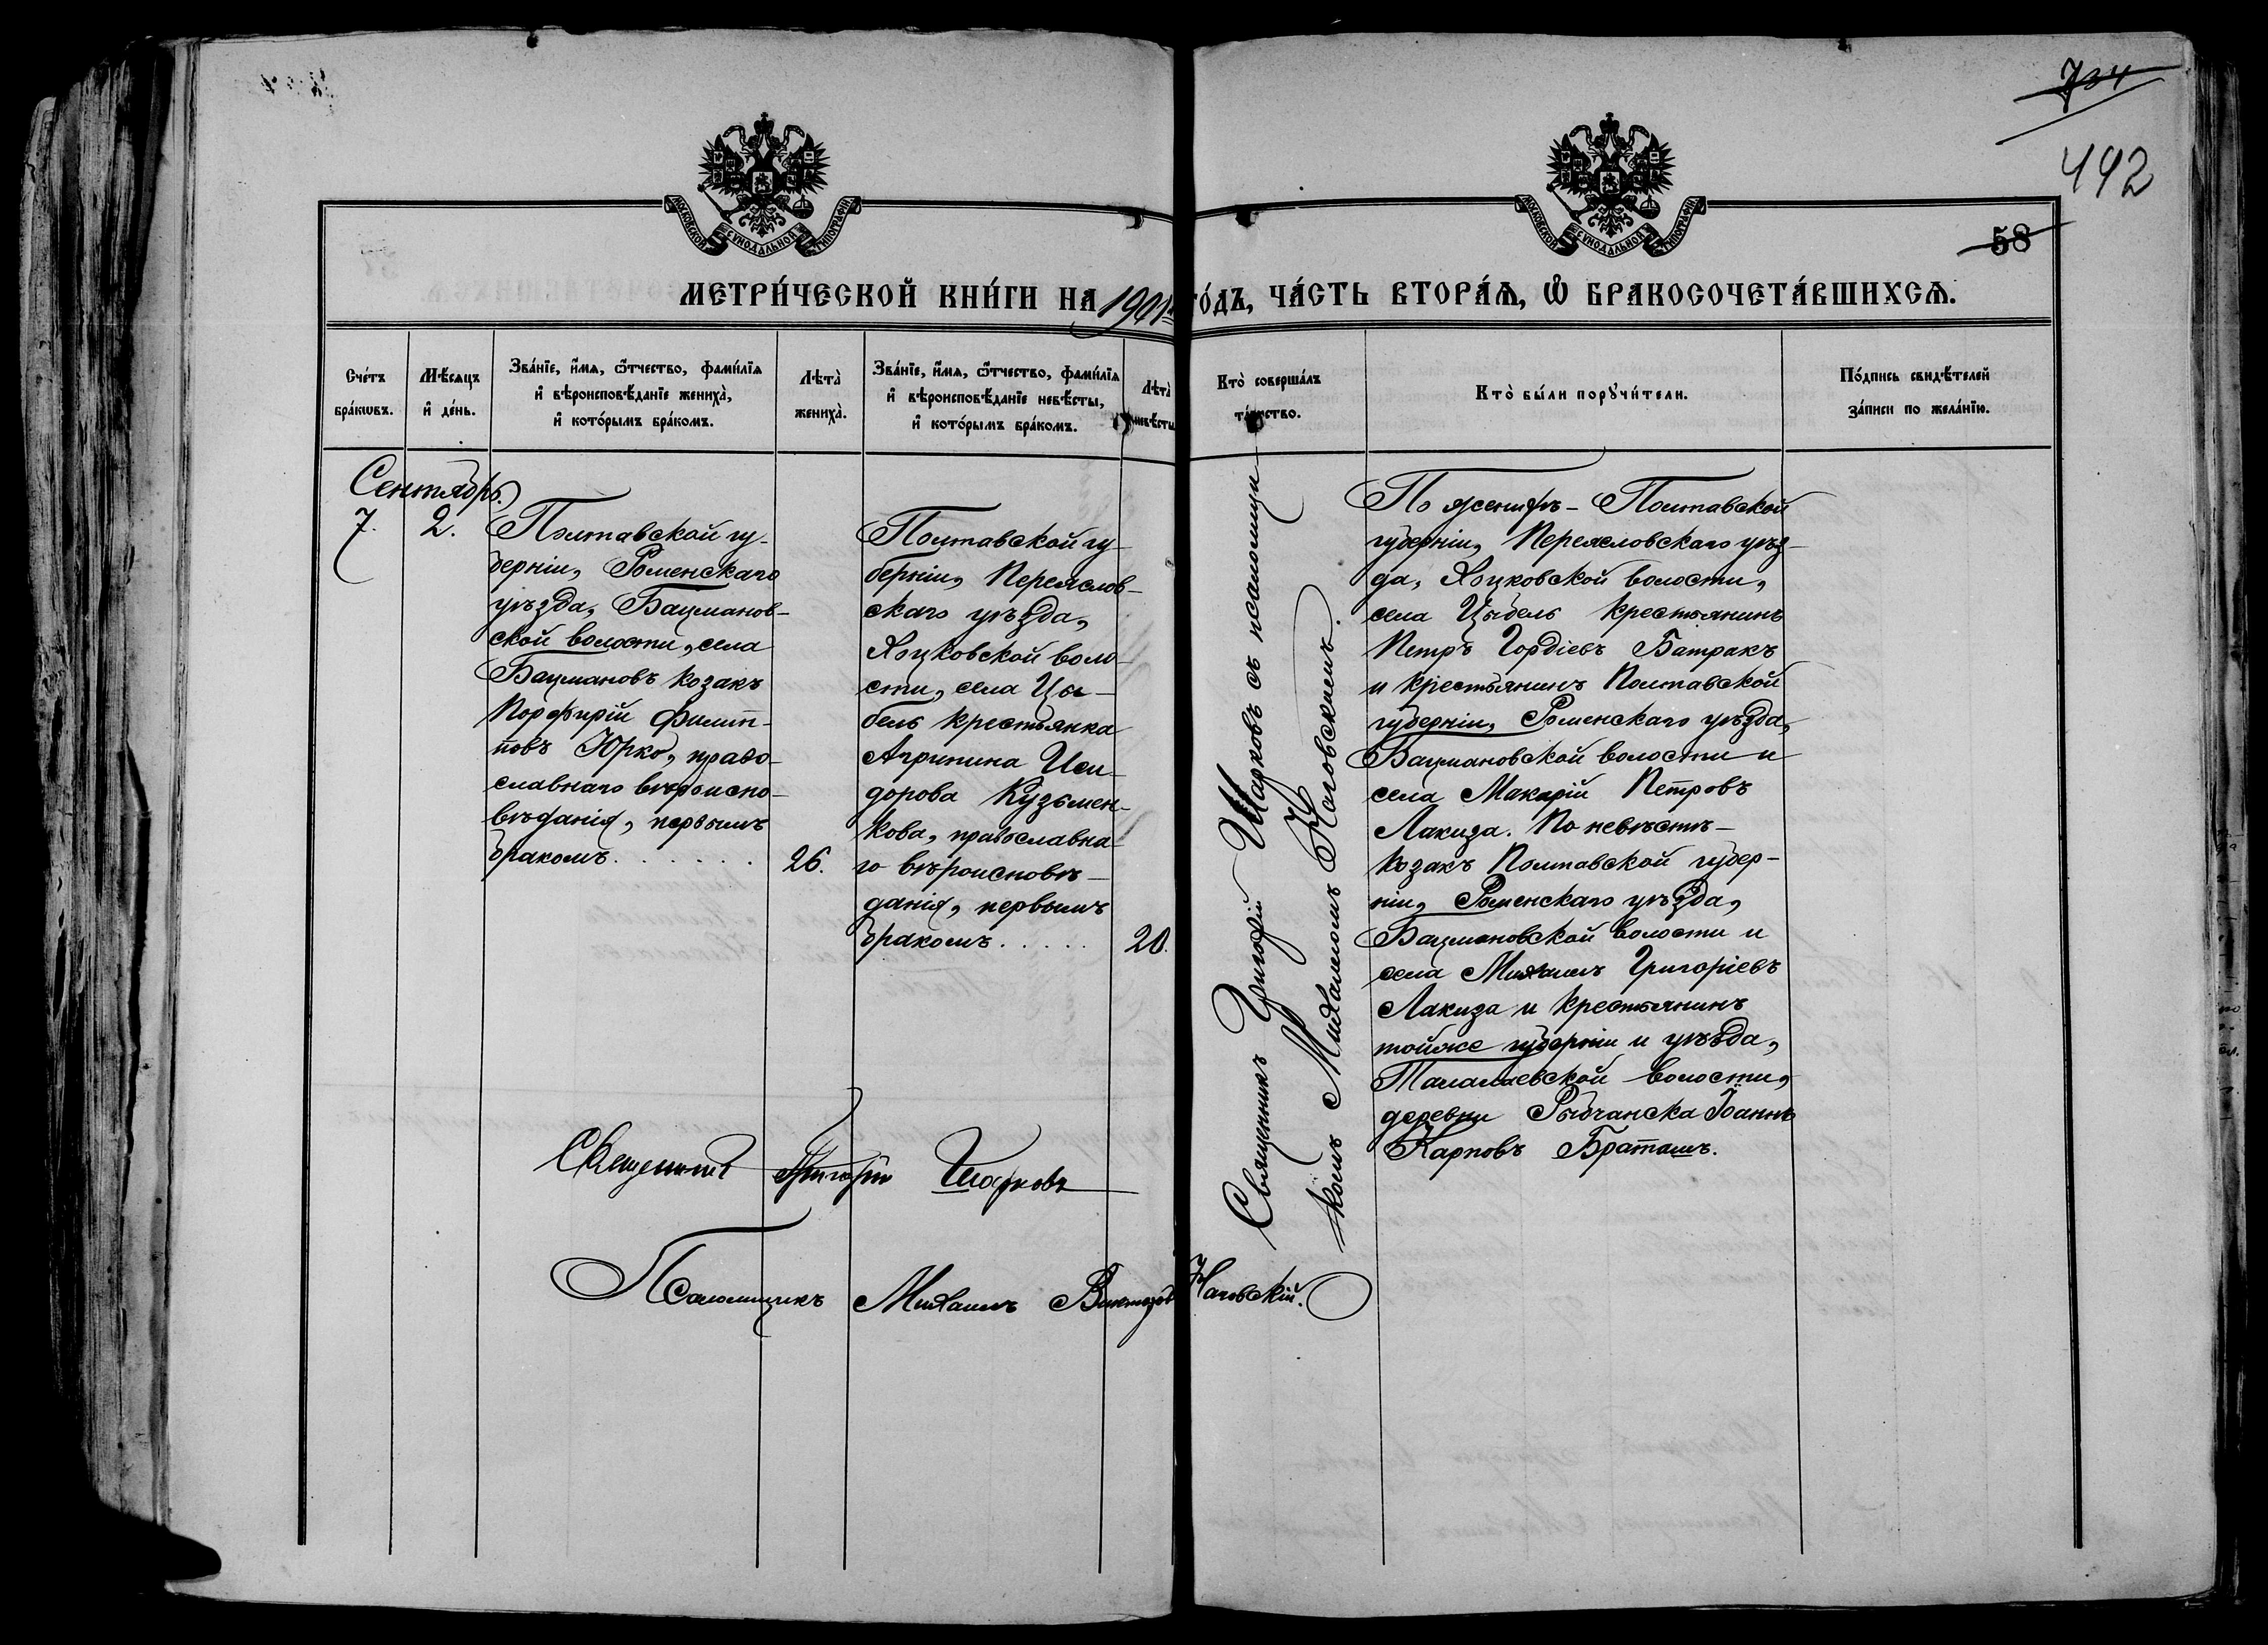 734
492
58
МОСКОВСКОЙ СѴНОДАЛЬНОЙ ТИПОГРАФІИ
МОСКОВСКОЙ СѴНОДАЛЬНОЙ ТИПОГРАФІИ
МЕТРИ́ЧЕСКОЙ КНИ́ГИ НА 1901й ГО́ДЪ, ЧА́СТЬ ВТОРА́Ѧ, Ѽ БРАКОСОЧЕТА́ВШИХСѦ.
Сче́тъ
бра́кѡвъ.
Мѣ́сяцъ
и҆ де́нь.
Зва́нїе, и҆́мя, ѻ҆́тчество, фами́лїя
и҆ вѣроисповѣ́данїе жениха̀,
и҆ кото́рымъ бра́комъ.
Лѣта̀
жениха̀.
Зва́нїе, и҆́мя, ѻ҆́тчество, фами́лїя
и҆ вѣроисповѣ́данїе невѣ́сты,
и҆ кото́рымъ бра́комъ.
Лѣта̀
невѣ́сты
Кто̀ соверша́лъ
та́инство.
Кто̀ бы́ли порꙋчи́тели.
По́дпись свидѣ́телей
за́писи по жела́нїю.
Сентябрь.
7.
2.
Полтавской гу-
берніи, Роменскаго
уѣзда, Бацманов-
ской волости, села
Бацмановъ козакъ
Порфирій Филип-
повъ Юрко, право-
славнаго вѣроиспо-
вѣданія, первымъ
бракомъ. . . . . . .
26.
Полтавской гу-
берніи, Переяслов-
скаго уѣзда,
Хоцковской воло-
сти, села Цы-
бель крестьянка
Агрипина Иси-
дорова Кузьмен-
кова, православна-
го вѣроисповѣ-
данія, первымъ
бракомъ. . . . .
20.
Священникъ Григорій Шарковъ съ псаломщи-
комъ Михаиломъ Каговскимъ.
По женихѣ - Полтавской
губерніи, Переясловскаго уѣз-
да, Хоцковской волости,
села Цыбель крестьянинъ
Петръ Гордіевъ Батракъ
и крестьянинъ Полтавской
губерніи, Роменскаго уѣзда,
Бацмановской волости и
села Макарій Петровъ
Лакиза. По невѣстѣ -
козакъ Полтавской губер-
ніи, Роменскаго уѣзда,
Бацмановской волости и
села Михаилъ Григоріевъ
Лакиза и крестьянинъ
тойже губерніи и уѣзда,
Талалаевской волости,
деревни Рыбчанска Іоаннъ
Карповъ Браташъ.
Священникъ Григорій Шарковъ
Псаломщикъ Михаилъ Викторовъ Каговскій.